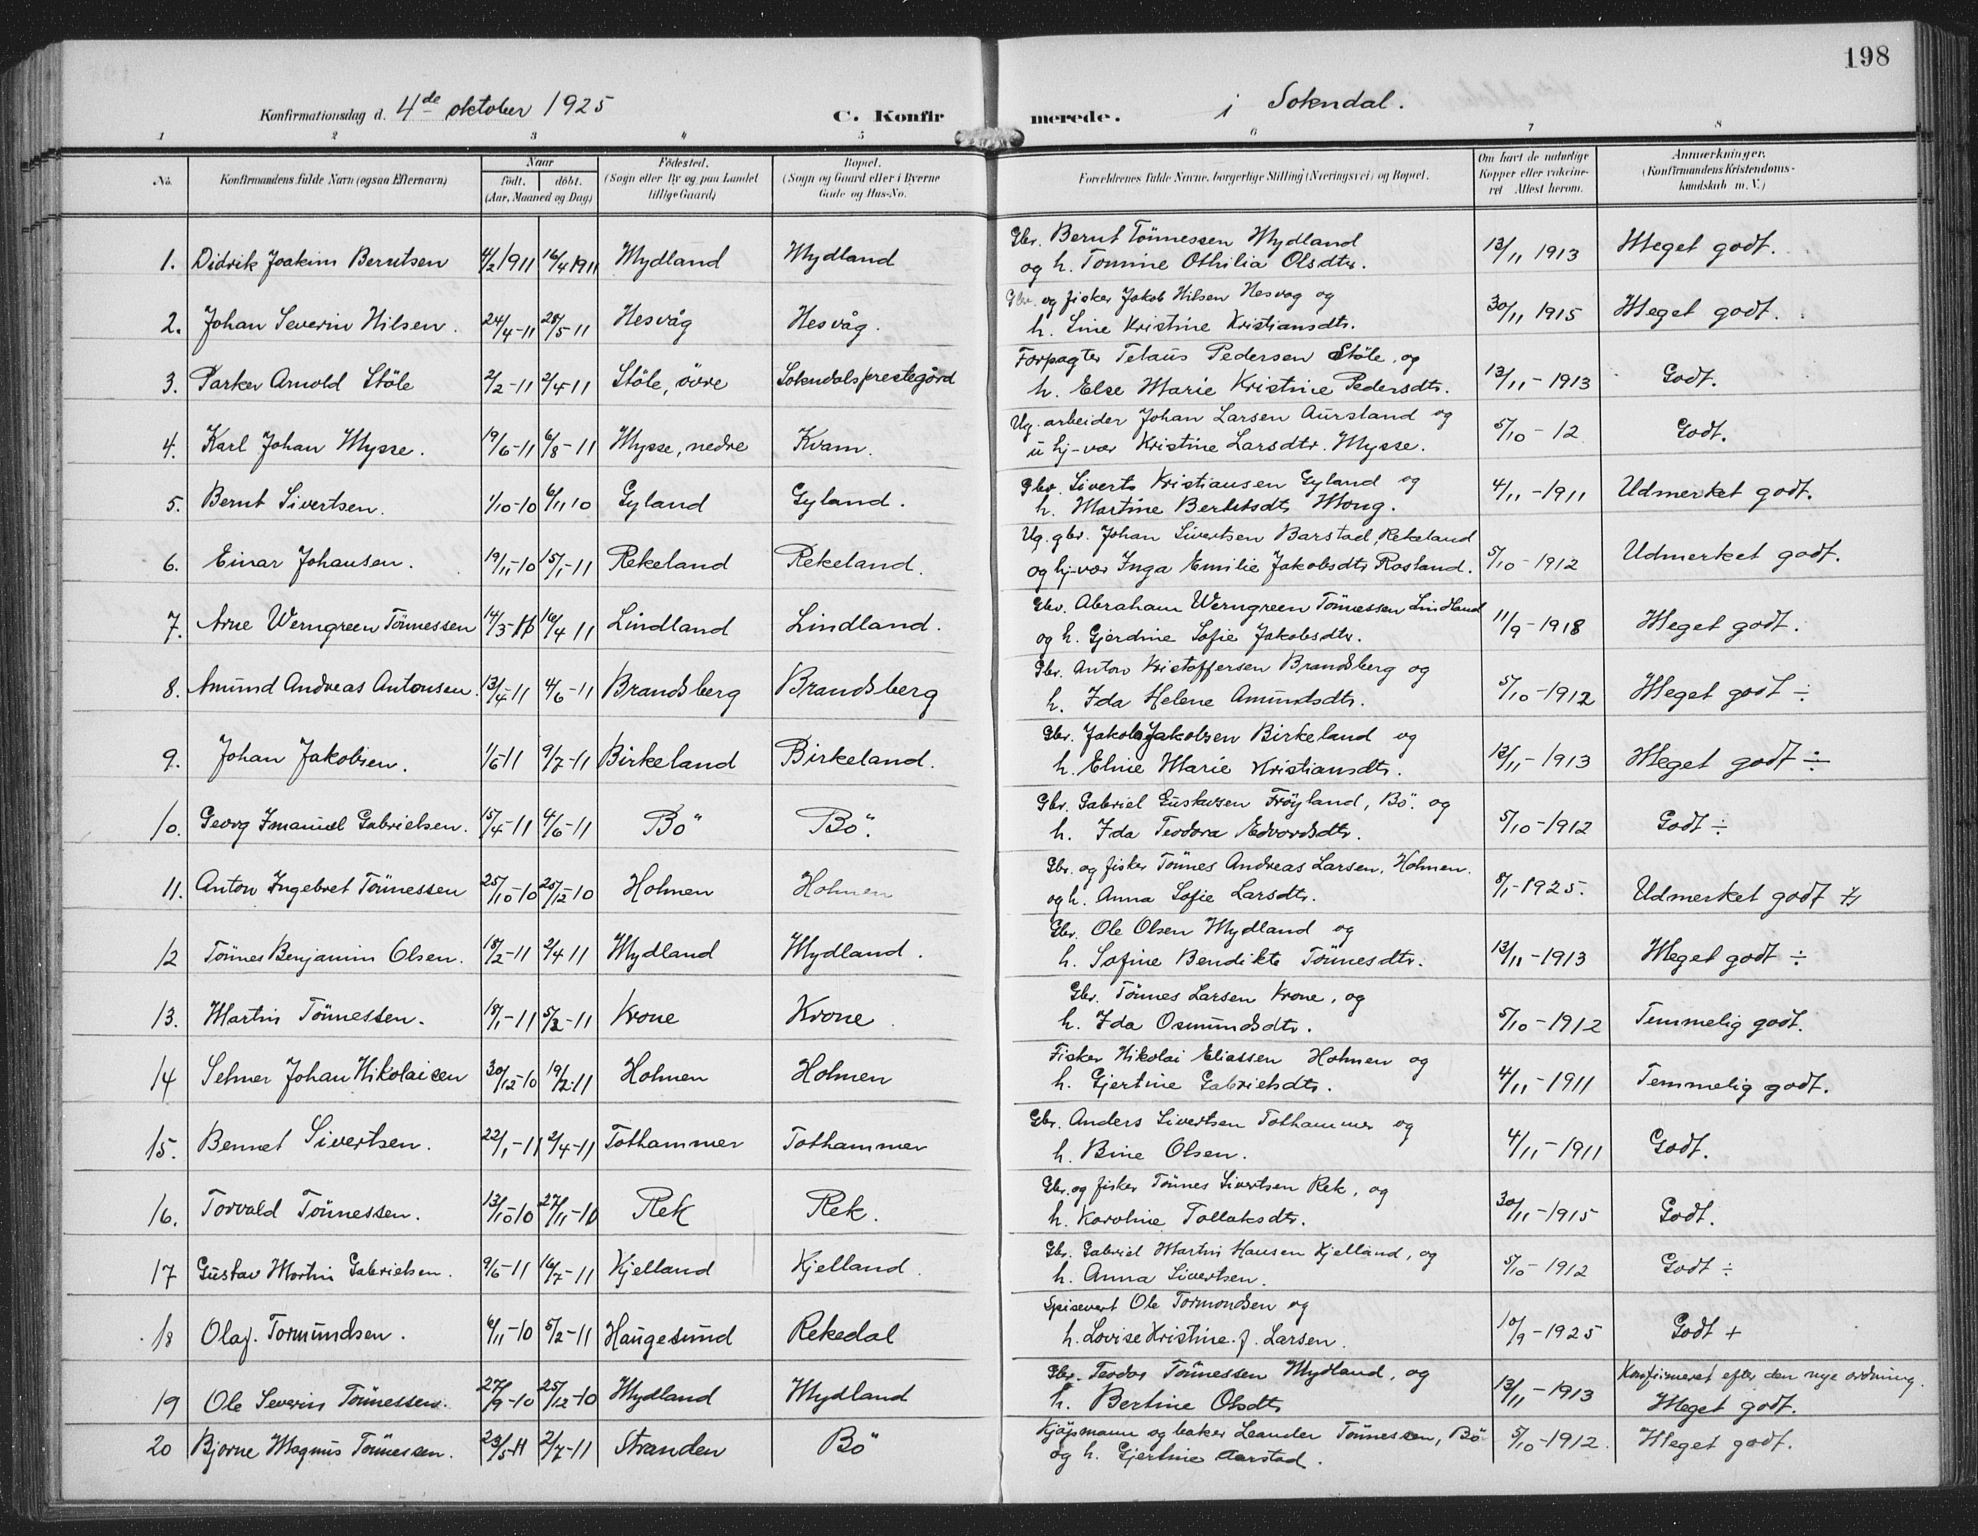 198
Konfirmationsdag d. 4de oktober 1925 C. Konfirmerede. i Sokndal.
1 2 3 4 5 6 7 8
No. Konfirmandens fulde Navn (ogsaa Efternavn) Naar født. døbt. (Aar, Maaned og Dag) Fødested. (Sogn eller By og paa Landet tillige Gaard) Bopæl. (Sogn og Gaard eller i Byerne Gade og Hus-No. Forældrenes fulde Navne, borgerlige Stilling (Næringsvei) og Bopæl. Om havt de naturlige Kopper eller vakcineret Attest herom. Anmærkninger. (Konfirmandens Kristendomskundskab m. V.)
1. Didrik Joakim Berntsen 4/2 1911 16/4 1911 Mydland Mydland Gbr. Bernt Tönnessen Mydland 13/11 1913 Meget godt.
og h. Tomine Othilia Olsdtr.
2. Johan Severin Nilsen. 24/4-11 28/5-11 Nesvåg Nesvåg. Gbr. og fisker Jakob Nilsen Nesvog og 30/11 1915 Meget godt.
h. Sine Kristine Kristiansdtr.
3. Parker Arnold Stöle 2/2-11 2/4-11 Stöle, övre Sokndalsprestegård Forpagter Telaus Pedersen Stöle, og 13/11-1913 Godt.
h. Else Marie Kristine Pedersdtr.
4. Karl Johan Mysse. 19/6-11 6/8-11 Mysse, nedre Kvam. Ug. arbeider Johan Larsen Aursland og 5/10-12 Godt.
u hj-vær Kristine Larsdtr. Mysse.
5. Bernt Sivertsen. 1/10-10 6/11 10 Gyland Gyland. Gbr. Siverts Kristiansen Gyland og 4/11-1911 Udmerket godt.
h. Martine Berntsdtr Mong.
6. Einar Johansen. 19/11-10 15/1-11 Rekeland Rekeland. Ug. gbr. Johan Sivertsen Barstad, Rekeland 5/10-1912 Udmerket godt.
og hj-vær Inga Emilie Jakobsdtr Rosland.
7. Arne Werngreen Tönnessen 14/3-11 16/4 11 Lindland Lindland. Gbr. Abraham Werngreen Tönnessen Lindland 11/9-1918 Meget godt.
og h. Gjerdine Sofie Jakobsdtr.
8. Amund Andreas Antonsen. 13/4-11 4/6-11 Brandsberg Brandsberg Gbr. Anton Kristoffersen Brandsberg og 5/10-1912 Meget godt ÷
h. Ida Helene Amundsdtr.
9. Johan Jakobsen. 1/6-11 9/7-11 Birkeland Birkeland. Gbr. Jakob Jakobsen Birkeland og 13/11-1913 Meget godt ÷
h. Eline Marie Kristiansdtr.
10. Georg Imanuel Gabrielsen. 15/4-11 4/6-11 Bö Bö. Gbr. Gabriel Gustavsen Fröyland, Bö. og 5/10-1912 Godt ÷
h. Ida Teodora Edvardsdtr.
11. Anton Ingebret Tönnessen 25/10-10 25/12-10 Holmen Holmen Gbr. og fisker Tönnes Andreas Larsen, Holmen. 8/1-1925. Udmerket godt
og h. Anna Sofie Larsdtr.
12 Tönnes Benjamin Olsen. 18/2-11 2/4 11 Mydland Mydland. Gbr. Ole Olsen Mydland og 13/11-1913 Meget godt ÷
h. Sofine Bendikte Tönnesdtr.
13. Martin Tönnessen. 18/1-11 5/2-11 Krone Krone Gbr. Tönnes Larsen Krone, og 5/10-1912 Temmelig godt.
h. Ida Osmundsdtr.
14 Selmer Johan Nikolaisen 30/12-10 19/2-11 Holmen Holmen Fisker Nikolai Eliassen Holmen og 4/11-1911 Temmelig godt.
h. Gjertine Gabrielsdtr.
15. Bennet Sivertsen. 22/1-11 2/4-11 Tothammer Tothammer Gbr. Anders Sivertsen Tothammer og 4/11-1911 Godt.
h. Bine Olsen.
16. Torvald Tönnessen. 13/10-10 27/11-10 Rek Rek. Gbr. og fisker Tönnes Sivertsen Rek, og 30/11-1915 Godt.
h. Karoline Tollaksdtr.
17 Gustav Martin Gabrielsen. 9/6-11 16/7-11 Kjelland Kjelland. Gbr. Gabriel Martin Hansen Kjelland, og 5/10-1912 Godt ÷
h. Anna Sivertsen.
18 Olaf. Tormundsen. 6/11-10 5/2-11 Haugesund Rekedal Spisevert Ole Tormondsen og 10/9-1925 Godt +
h. Lovise Kristine f. Larsen.
19 Ole Severin Tönnessen. 27/9-10 25/12-10 Mydland Mydland Gbr. Teodor Tönnessen Mydland, og 13/11-1913 Konfirmeret efter den nye ordning.
h. Bertine Olsdtr Meget godt.
20 Bjarne Magnus Tönnessen. 23/5-11 2/7-11 Stranden Bö Kjöpmann og baker Leander Tönnessen, Bö 5/10-1912. Meget godt.
og h. Gjertine Aarstad.